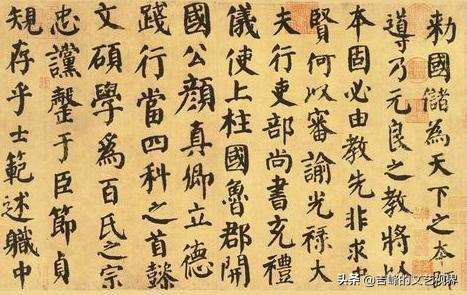 勅國儲為天下之本
導乃元良之教將以
本固必由教先非求
賢何以審諭光祿大
夫行吏部尚書充禮
儀使上柱國魯郡開
國公顏真卿立德
踐行當四科之首懿
文碩學為百氏之宗
忠讜罄于臣節貞
規存乎士範述職中
头条 @吉峰的文艺视界